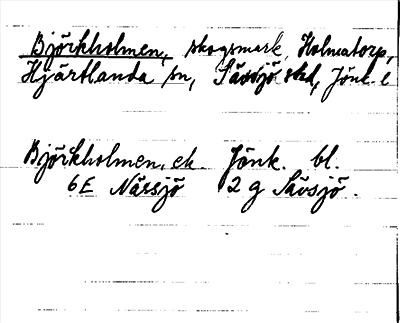 Björkholmen, skogsmark, Holmatorp,
Hjärtlanda sn, Sävsjö stad, Jönk. l
Björkholmen, ek. Jönk. bl.
6E Nässjö 2 g Sävsjö.